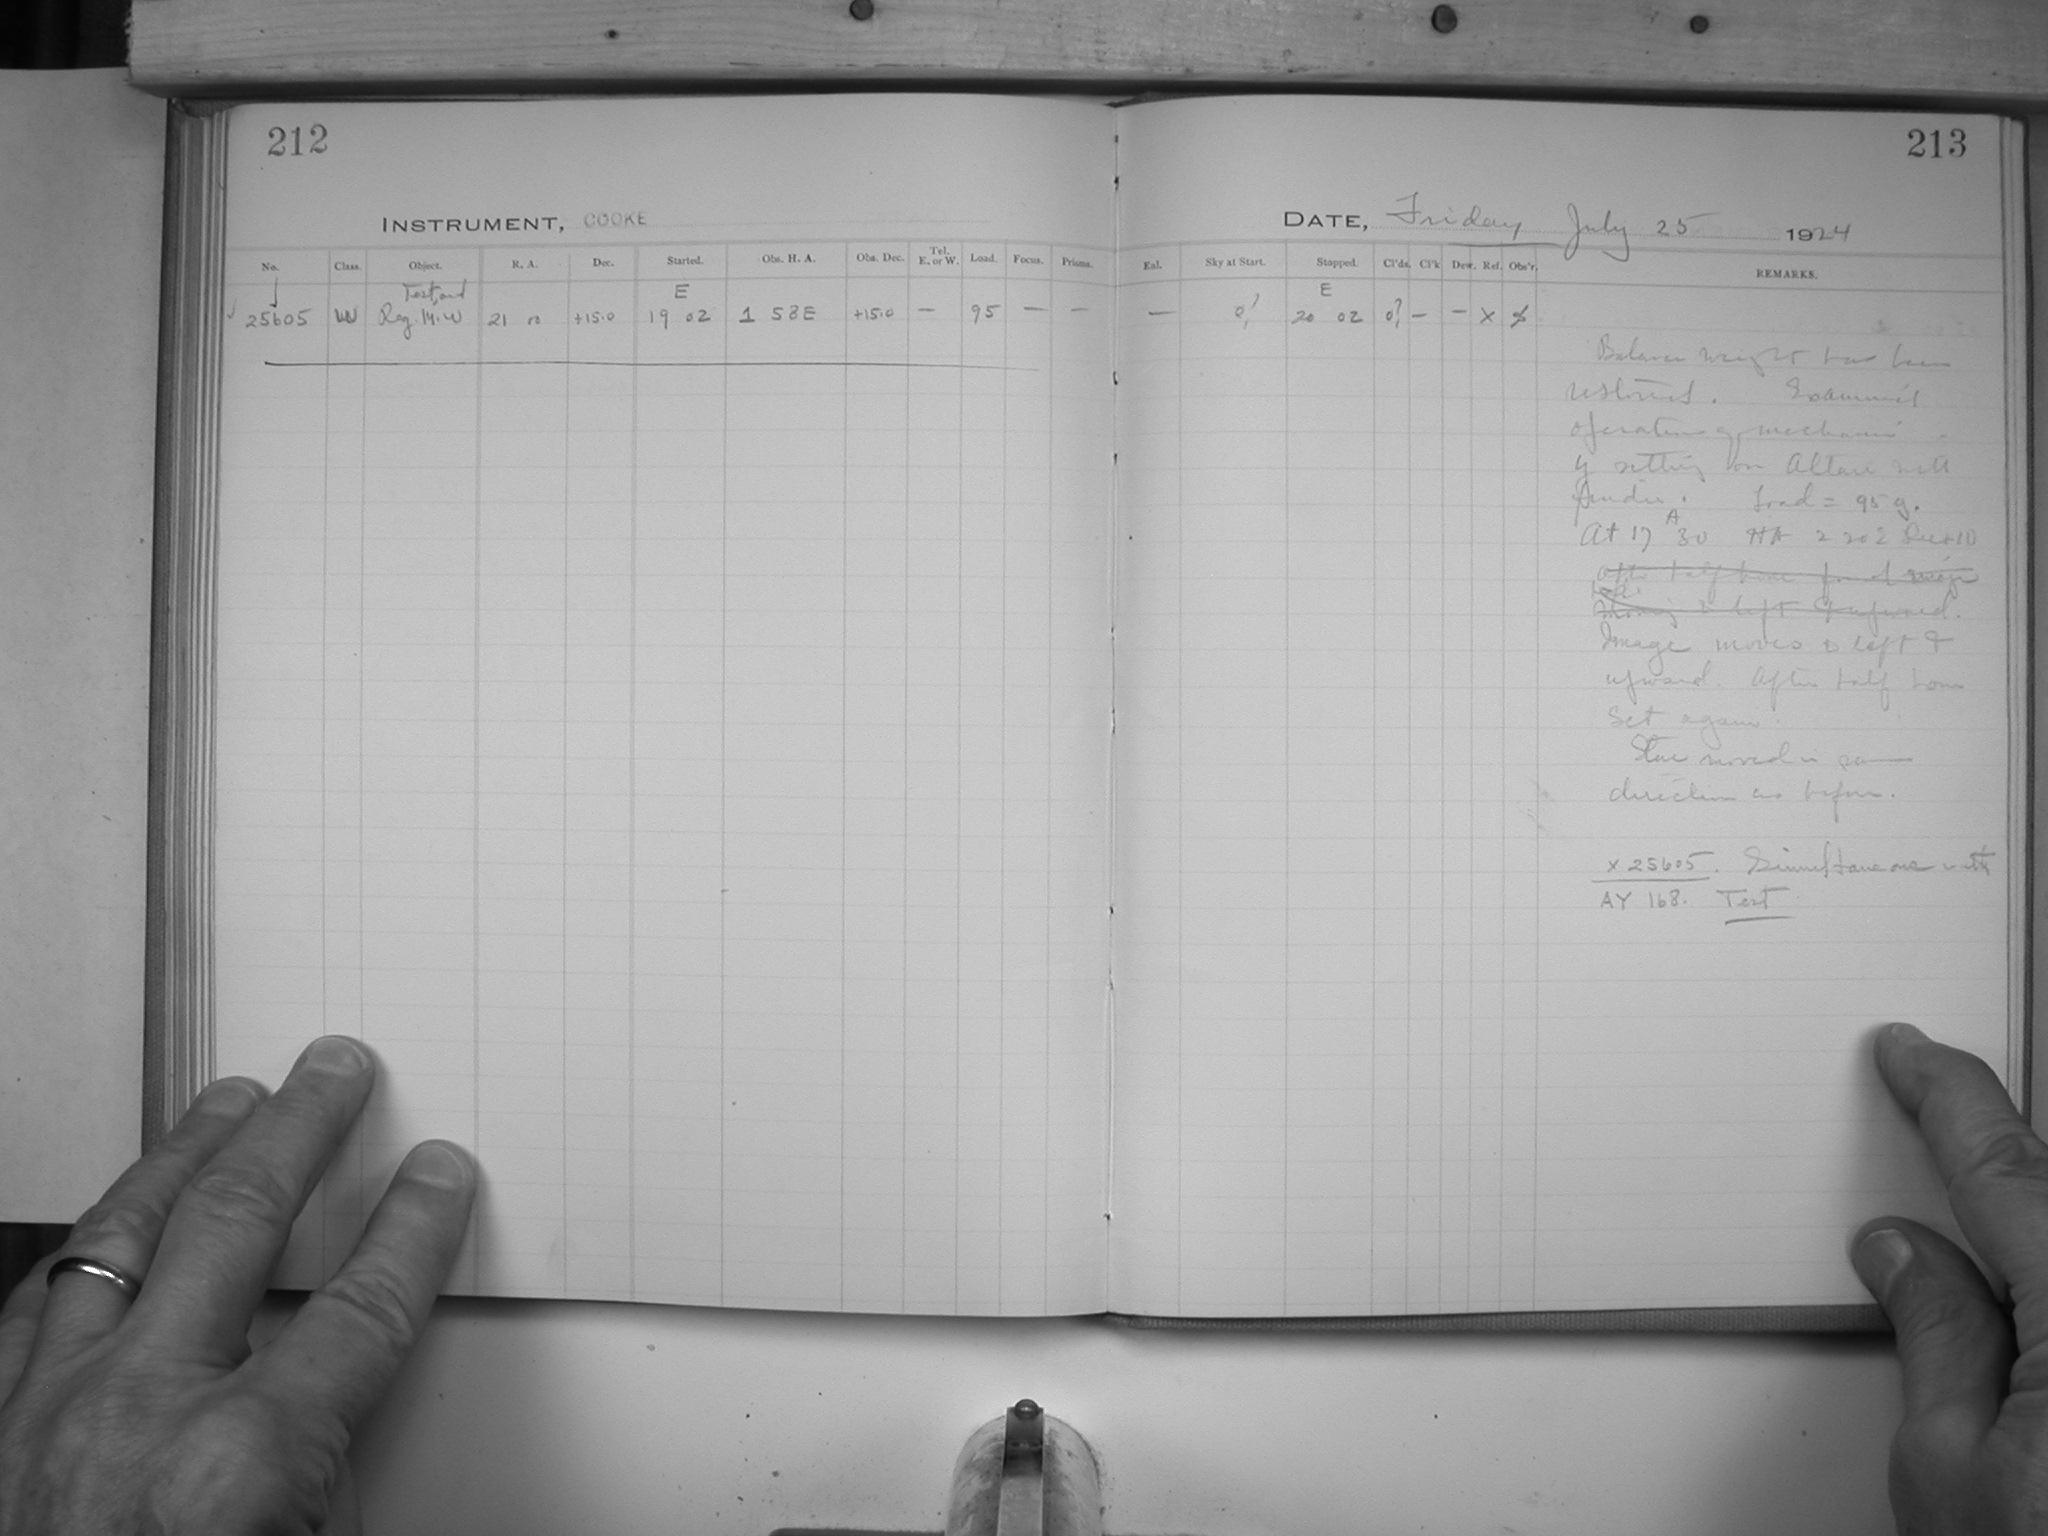 212
213
INSTRUMENT, COOKE
DATE, Friday July 25 1924
No. Class. Object. R. A. Dec. Started. Obs. H. A. Obs. Dec. Tel. E. or W. Load. Focus. Prisms.
Enl. Sky at Start. Stopped. Cl'ds. Cl'k Dew. Ref. Obs'r. REMARKS.
Test, and E
E
25605 W Reg. 14. W 21 00 +15.0 19 02 1 58E +15.0 — 95 — —
— 0? 20 02 0? — — x
Balance weight has been
restored. Examined
operation of mechanism
by setting on Altair with
finder. Load = 95 g.
At 17 30 HA 2 20 E Dec +10
A
after half hour found image
moving to left & upward.
Image moves to left &
upward. After half hour
set again.
Star moved in same
direction as before.
x 25605. Simultaneous with
AY 168. Test